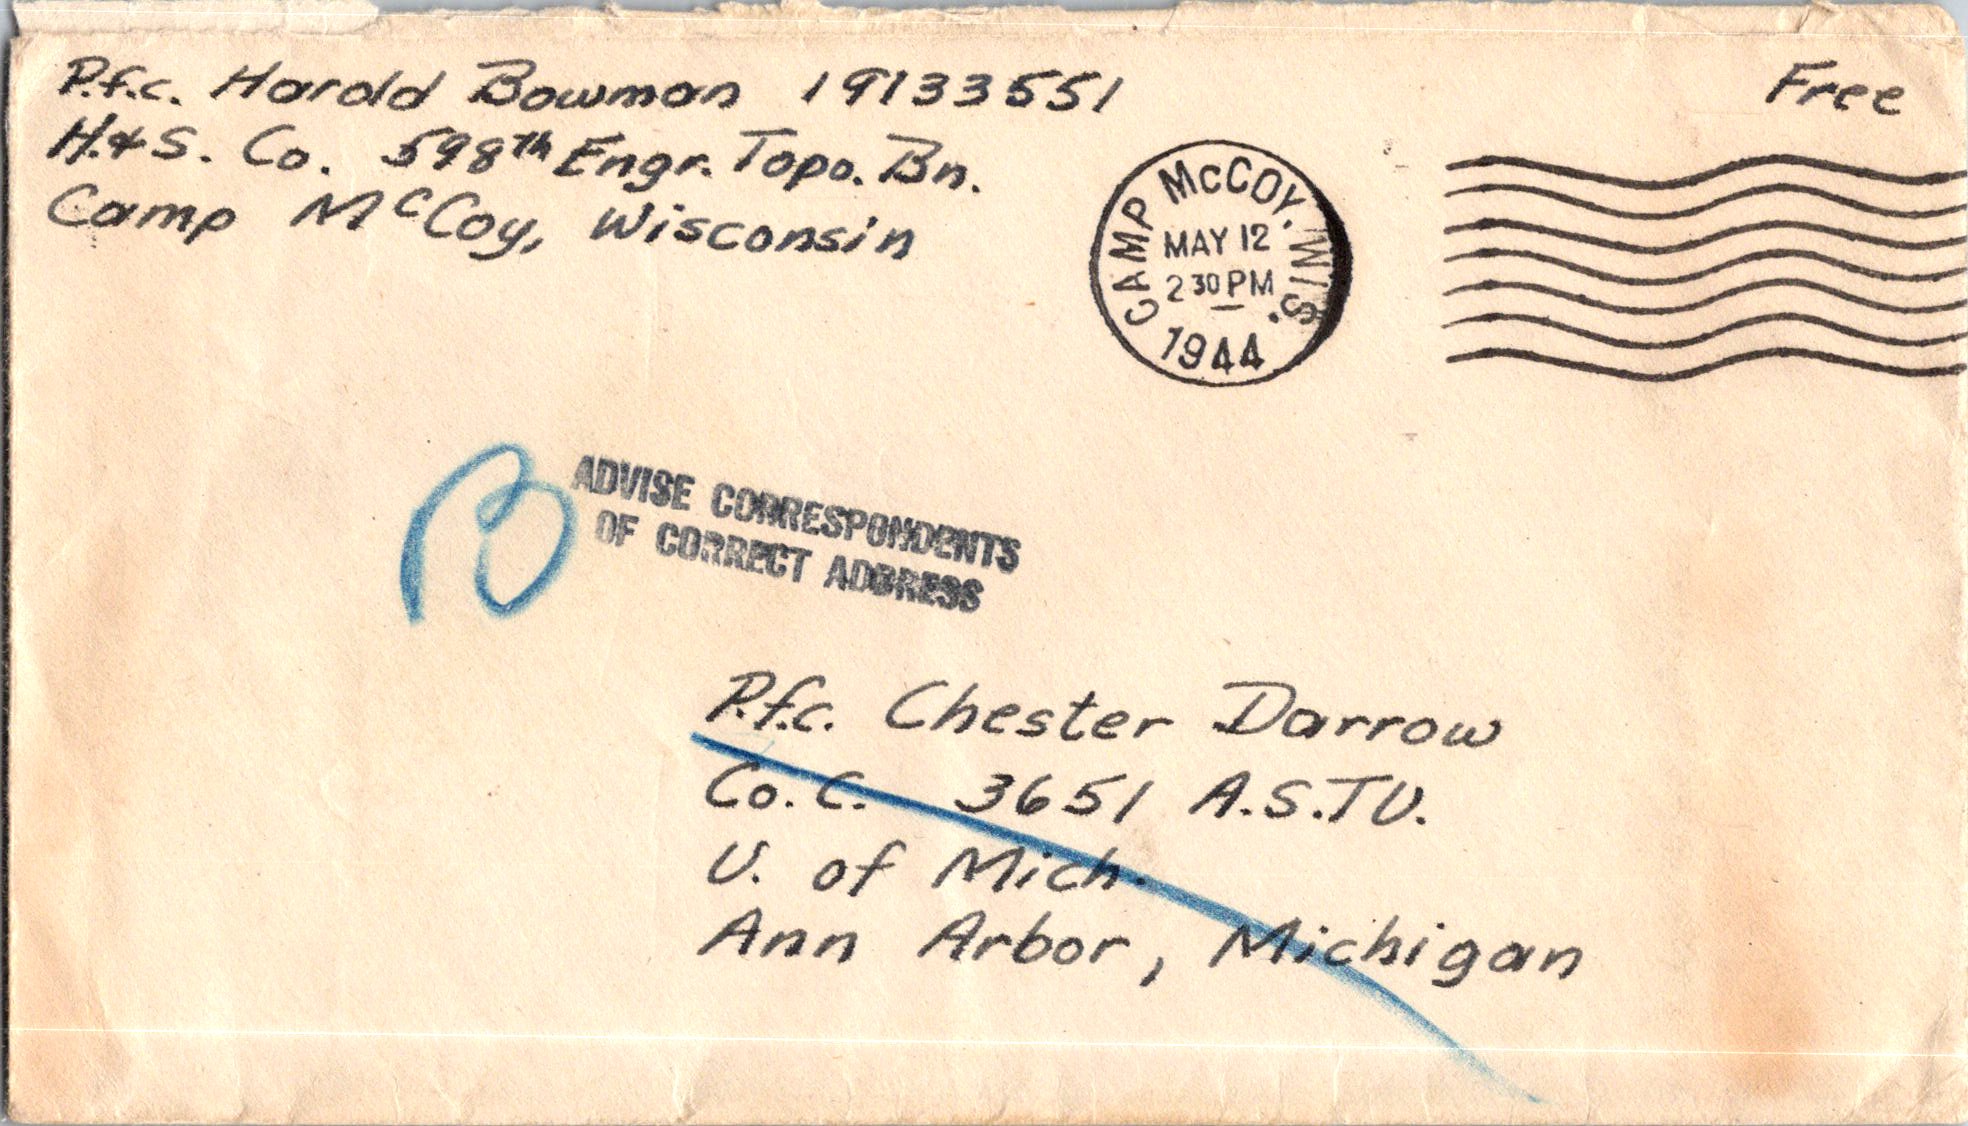 P.f.c. Harold Bowman 19133551
H.&S. Co. 598th Engr. Topo. Bn.
Camp McCoy, Wisconsin
Free
CAMP McCOY, WIS.
MAY 12
2 30 PM
1944
ADVISE CORRESPONDENTS
OF CORRECT ADDRESS
P.f.c. Chester Darrow
Co. C. 3651 A.S.T.U.
U. of Mich.
Ann Arbor, Michigan